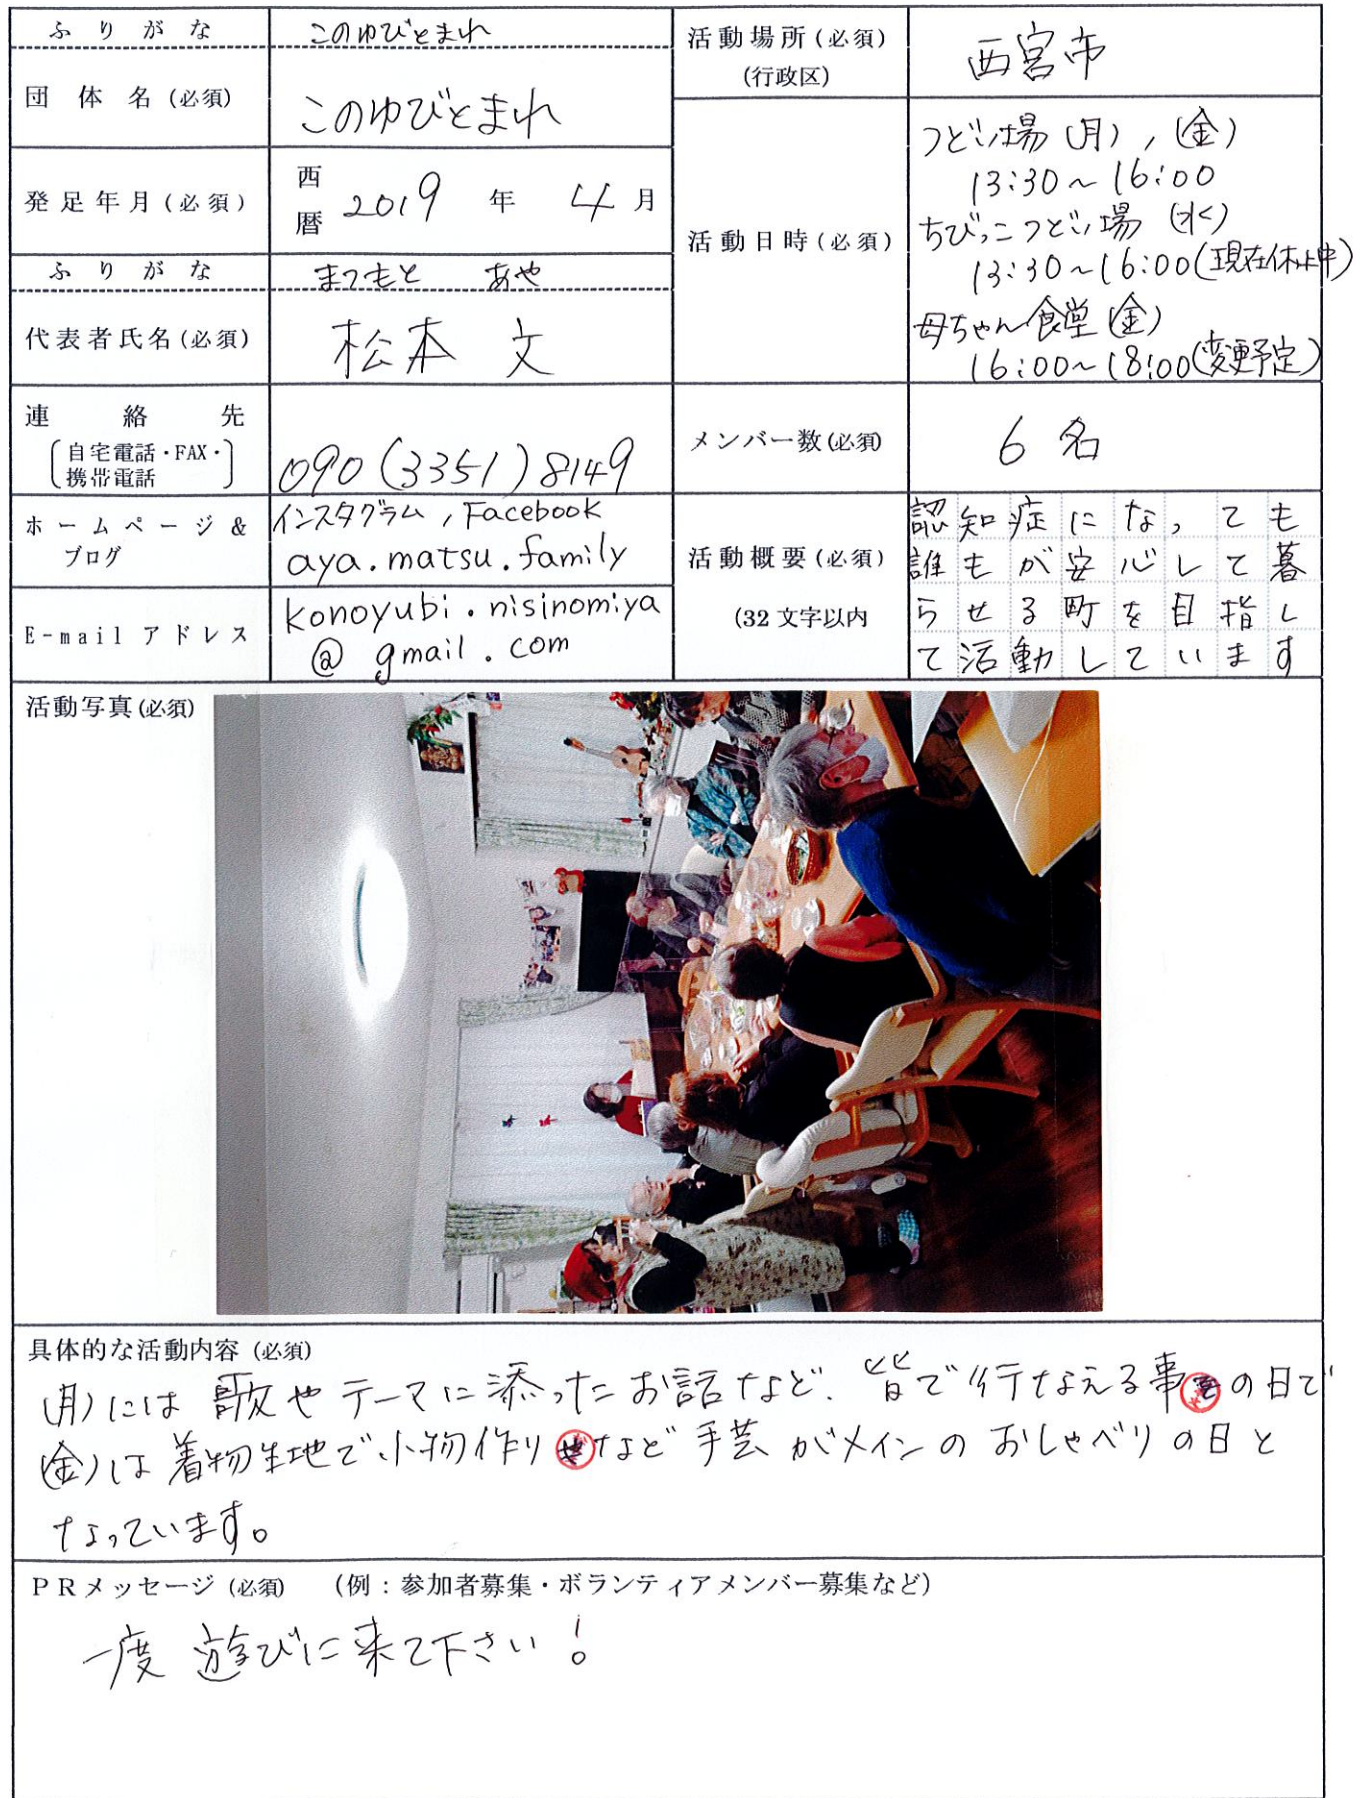 ふりがな このゆびとまれ
団体名(必須) このゆびとまれ
発足年月(必須) 西暦 2019 年 4 月
ふりがな まつもと あや
代表者氏名(必須) 松本 文
連絡先
[自宅電話・FAX・
携帯電話] 090(3351)8149
ホームページ&
ブログ
インスタグラム, Facebook
aya.matsu.family
E-mail アドレス
konoyubi.nisinomiya
@gmail.com
活動場所(必須)
(行政区)
西宮市
活動日時(必須)
つどい場(月), (金)
13:30~16:00
ちびっこつどい場 (水)
13:30~16:00(現在休止中)
母ちゃん食堂(金)
16:00~18:00(変更予定)
メンバー数(必須) 6名
活動概要(必須)
(32文字以内
認知症になっても
誰もが安心して暮
らせる町を目指し
て活動しています
活動写真(必須)
具体的な活動内容(必須)
(月)には 歌や テーマに添ったお話など、皆で行なえる事の日で
(金)は 着物生地で小物作りなど手芸がメインのおしゃべりの日と
なっています。
PRメッセージ(必須) (例:参加者募集・ボランティアメンバー募集など)
一度 遊びに来て下さい!